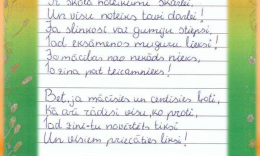 Ir skolā noteikumi skarbi,
Un visu noteiks tavi darbi!
Ja slinkosi vai gumiju stiepsi,
Tad eksāmenos muguru lieksi!
Ja mācības nav nekāds nieks,
To zina pat teicamnieks!
Bet, ja mācīsies un centīsies ļoti,
Kā arī rādīsi visu, ko proti,
Tad zini - tu novērtēts tiksi
Un visiem priecāties liksi!